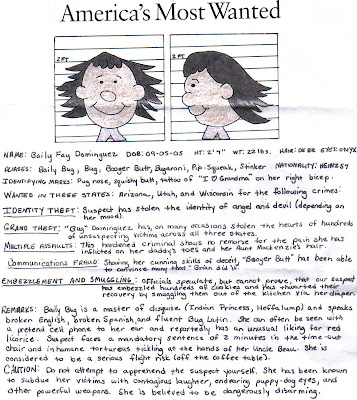 America's Most Wanted
2 FT
2 FT
NAME: Baily Fay Dominguez DOB: 09-05-05 HT: 2'4" WT: 22 lbs. HAIR: DK BR EYES: ONYX
ALIASES: Baily Bug, Bug, Booger Butt, Bugaroni, Pip-Squeak, Stinker NATIONALITY: HEINZ 57
IDENTIFYING MARKS: Pug nose, squishy butt, tattoo of "I ♡ Grandma" on her right bicep.
WANTED IN THREE STATES: Arizona, Utah, and Wisconsin for the following crimes:
IDENTITY THEFT: Suspect has stolen the identity of angel and devil (depending on
her mood).
GRAND THEFT: "Bug" Dominguez has, on many occasions stolen the hearts of hundreds
of unsuspecting victims across all three states.
MULTIPLE ASSAULTS: This hardened criminal shows no remorse for the pain she has
inflicted on her daddy's toes and her Aunt Mackenzie's hair.
Communications FRAUD: Sharing her cunning skills of deceit, "Booger Butt" has been able
to convince many that "Brian did it".
EMBEZZLEMENT AND SMUGGLING: Officials speculate, but cannot prove, that our suspect
has embezzled hundreds of Cookies and has thwarted their
recovery by smuggling them out of the kitchen via her diaper.
REMARKS: Baily Bug is a master of disguise (Indian Princess, Heffalump) and speaks
broken English, broken Spanish, and fluent Bug Latin. She can often be seen with
a pretend cell phone to her ear and reportedly has an unusual liking for red
licorice. Suspect faces a mandatory sentence of 2 minutes in the time-out
chair and inhumane torturous tickling at the hands of her Uncle Beau. She is
considered to be a serious flight risk (off the coffee table).
CAUTION: Do not attempt to apprehend the suspect yourself. She has been known
to subdue her victims with contagious laughter, endearing puppy-dog eyes, and
other powerful weapons. She is believed to be dangerously disarming.